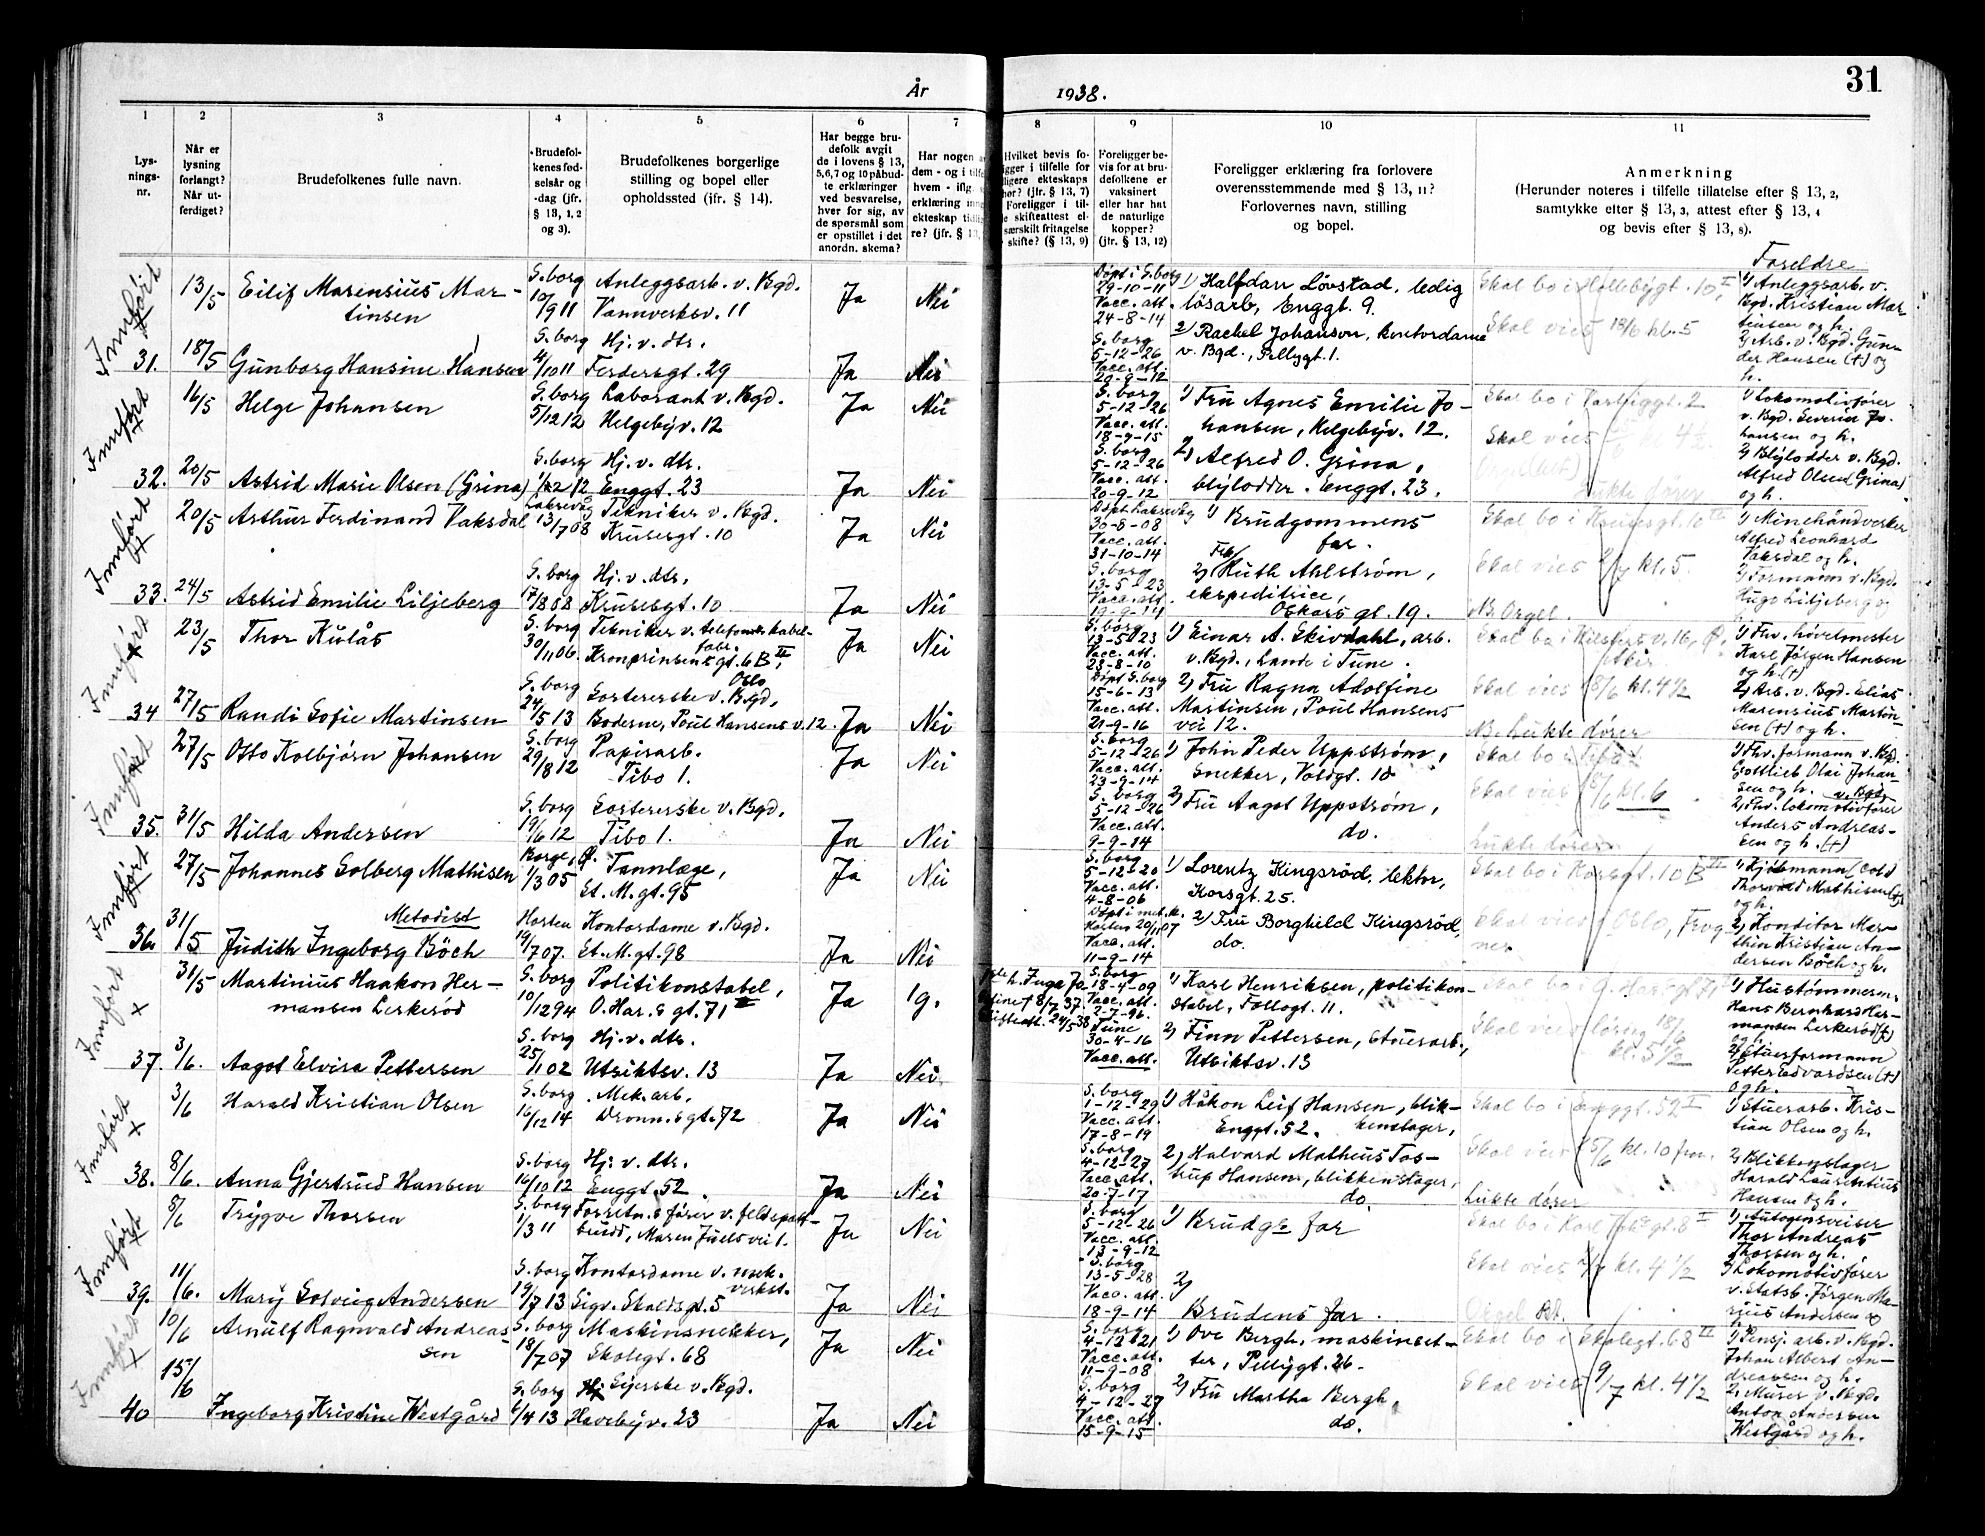 31
År 1938.
1
2
3
4
5
6
7
8
9
10
11
Lys-
nings-
nr.
Når er
lysning
forlangt?
Når ut-
ferdiget?
Brudefolkenes fulle navn.
Brudefol-
kenes fød-
selsår og
-dag (jfr.
§ 13, 1, 2
og 3).
Brudefolkenes borgerlige
stilling og bopel eller
opholdssted (jfr. § 14).
Har begge bru-
defolk avgit
de i lovens § 13,
5,6,7 og 10 påbud-
te erklæringer
ved besvarelse,
hver for sig, av
de spørsmål som
er opstillet i det
anordn. skema?
Har nogen
dem - og i
hvem - iflg.
erklæring
ekteskap
re? (jfr. § 13,
Hvilket bevis fo-
ligger i tilfelle for
ekteskaps
(jfr. § 13, 7)
Foreligger i til-
skifteattest el-
særskilt fritagelse
skifte? (§ 13, 9)
Foreligger be-
vis for at bru-
defolkene er
vaksinert
eller har hat
de naturlige
kopper?
(jfr. § 13, 12)
Foreligger erklæring fra forlovere
overensstemmende med § 13, 11?
Forlovernes navn, stilling
og bopel.
Anmerkning
(Herunder noteres i tilfelle tillatelse efter § 13, 2,
samtykke efter § 13, 3, attest efter § 13, 4
og bevis efter § 13, 8).
Foreldre
Innført
13/5 Eilif Marensius Mar-
tinsen
S.borg
10/9 11
Anleggsarb. v. Bgd.
Vannverksv. 11
Ja Nei
Døpt i S.borg
29-10-11
Vacc. att.
24-8-14
1) Halfdan Lövstad, ledig
lösarb, Enggt. 9.
Skal bo i
1) Anleggsarb. v.
Bgd. Kristian Mar
tinsen og h.
31. 18/5 Gunborg Hansine Hansen
S.borg
4/10 11
Hj. v. dtr.
Ferdersgt. 29
Ja Nei
S.borg
5-12-26
Vacc. att.
20-9-12
2) Rachel Johanson, kontordame
v. Bgd., Pellygt. 1.
Skal vies 18/6 kl. 5
2) Arb. v. Bgd. Gun-
der Hansen (+) og
h.
Innført
16/5 Helge Johansen
S.borg
5/12 12
Laborant v. Bgd.
Helgebyv. 12
Ja Nei
S.borg
5-12-26
Vacc. att.
18-9-15
1) Fru Agnes Emilie Jo-
hansen, Helgebyv. 12.
1) Lokomotivfører
v. Bgd. Severin Jo-
hansen og h.
32. 20/5 Astrid Marie Olsen (Grina)
S.borg
Hj. v. dtr.
Enggt. 23
Ja Nei
S.borg
5-12-26
Vacc. att.
20-9-12
2) Alfred O. Grina,
blylodder. Enggt. 23.
Skal vies kl. 4½
Lukte dører
2) Blylodder v. Bgd.
Alfred Olsen (Grina)
og h.
Innført
20/5 Arthur Ferdinand Vaksdal
Laksevåg
13/7 08
Tekniker v. Bgd.
Krusesgt. 10
Ja Nei
Døpt Laksevåg
30-8-08
Vacc. att.
31-10-14
1) Brudgommens
far.
Skal bo i Krusesgt. 10
1) Minehåndverker
Alfred Leonhard
Vaksdal og h.
33. 24/5 Astrid Emilie Liljeberg
S.borg
17/8 08
Hj. v. dtr.
Krusesgt. 10
Ja Nei
S.borg
13-5-23
Vacc. att.
19-9-14
2) Frk. Ruth Ahlström,
ekspeditrice,
Oskars gt. 19.
Skal vies kl. 5.
NB. Orgel.
2) Formann v. Bgd.
Hugo Liljeberg og
Innført
23/5 Thor Kulås
S.borg
30/11 06.
Tekniker v. telefonkabel-
fabr.
Kronprinsensgt. 6 B II,
Oslo
Ja Nei
S.borg
13-5-23
Vacc. att.
23-8-10
1) Einar A. Skivdahl, arb.
v. Bgd., Lande i Tune.
1) Fhv. høvelmester
Karl Jörgen Hansen
og h. (+)
34 27/5 Randi Sofie Martinsen
S.borg
24/5 13
Sorterske v. Bgd,
Boderne, Poul Hansens v. 12.
Ja Nei
Døpt S.borg
15-6-13
Vacc. att.
21-9-16
2) Fru Ragna Adolfine
Martinsen, Poul Hansens
vei 12.
Skal vies 18/6 kl. 4½
NB. Lukte dører
2) Arb. v. Bgd. Elias
Marensius Martin-
sen (+) og h.
Innført
27/5 Otto Kolbjörn Johansen
S.borg
29/8 12
Papirarb.
Tibo 1.
Ja Nei
S.borg
5-12-26
Vacc. att.
23-9-14
1) John Peder Uppström,
snekker, Voldgt. 10
Skal bo i Tibo 1
1) Fhv. formann v. Bgd.
Gottlieb Olai Johan-
sen og h.
35. 31/5 Hilda Andersen
S.borg
19/6 12
Sorterske v. Bgd.
Tibo 1.
Ja Nei
S.borg
5-12-26
Vacc. att.
9-9-14
2) Fru Aagot Uppström,
do.
Skal vies 18/6 kl. 6
Lukte dører
v. Bgd.
2) Fhv. lokomotivfører
Anders Andreas-
sen og h. (+)
Innført
27/5 Johannes Solberg Mathisen
Borge, Ø.
1/3 05
Tannlæge,
St. M. gt. 95
Ja Nei
S.borg
5-12-20
Vacc. att.
4-8-06
1) Lorentz Kingsröd, lektor,
Korsgt. 25.
Skal bo i Korsgt. 10 B
1) Kjöbmann Oold
Thorvald Mathisen (+)
og h.
Metodist
36. 31/5 Judith Ingeborg Böch
Horten
19/7 07.
Kontordame v. Bgd.
St. M. gt. 98
Ja Nei
Døpt i met. k.
Horten 20/11 07
Vacc. att.
11-9-14
2) Fru Borghild Kingsröd,
do.
Skal vies i Oslo, Frog
ner
2) Konditor Mar-
thin Kristian An-
dersen Böch og h.
Innført
31/5 Martinius Haakon Her-
mansen Lerkeröd
S.borg
10/12 94
Politikonstabel,
O. Har.s gt. 71 II
Ja 1 g.
S.borg
18-4-09
Vacc. att.
2-7-96.
1) Karl Henriksen, politikon-
stabel, Follogt. 11.
1) Hustømmerm.
Hans Bernhard Her-
mansen Lerkeröd (+)
og h.
37. 3/6. Aagot Elvira Pettersen
S.borg
25/1 02
Hj. v. dtr.
Utsiktsv. 13
Ja Nei
Tune
30-4-16
Vacc. att.
2) Finn Pettersen, stuerarb.,
Utsiktsv. 13
Skal vies lörag 18/6
kl. 5½
2) Stuerformann
Petter Edvardsen (+)
og h.
Innført
3/6 Harald Kristian Olsen
S.borg
16/12 14
Mek. arb,
Dronn.s gt. 72
Ja Nei
S.borg
1-12-29
Vacc. att.
17-8-19
1) Håkon Leif Hansen, blik-
kenslager,
Enggt. 52.
Skal bo i Enggt. 52 I
1) Stuerarb. Kris-
tian Olsen og h.
38. 8/6. Anna Gjertrud Hansen
S.borg
16/10 12
Hj. v. dtr.
Enggt. 52.
Ja Nei
S.borg
4-12-27
Vacc. att.
20-7-17
2) Halvard Matheus Tos-
trup Hansen, blikkenslager,
do.
Skal vies 25/6 kl. 10 fm.
Lukte dører
2) Blikkenslager
Harald Laurentius
Hansen og h.
Innført
8/6 Trygve Thorsen
S.borg
1/3 11
Forretn.s fører v. feldspatt-
brudd, Maren Juels vei 1.
Ja Nei
S.borg
5-12-26
Vacc. att.
13-9-12
1) Brudgs far
1) Autogensveiser
Thor Andreas
Thorsen og h.
39. 11/6. Mary Solveig Andersen
S.borg
19/7 13
Kontordame v. mek.
verkst.
Sigv. Skaldsgt. 5
Ja Nei
S.borg
13-5-28
Vacc. att.
18-9-14
2)
Brudens far.
Skal vies kl. 4½
2) Lokomotivfører
v. Statsb. Jörgen Ma-
rius Andersen og
Innført
10/6 Arnulf Ragnvald Andreas
sen
S.borg
18/7 07
Maskinsnekker,
Skolegt. 68
Ja Nei
S.borg
4-12-21
Vacc. att.
11-9-08
1) Ove Bergh, maskinset-
ter, Pellygt. 26-
Skal bo i Skolegt. 68 II
1) Pensj. arb. v. Bgd.
Johan Albert An-
dreassen og h.
40 15/6 Ingeborg Kristine Westgård
S.borg
6/4 13
Syerske v. Bgd.
Havebyv. 23
Ja Nei
S.borg
4-12-27
Vacc. att.
15-9-15
2) Fru Martha Bergh,
do.
Skal vies 9/7 kl. 4½
2) Murer v. Bgd.
Anton Andersen
Westgård og h.